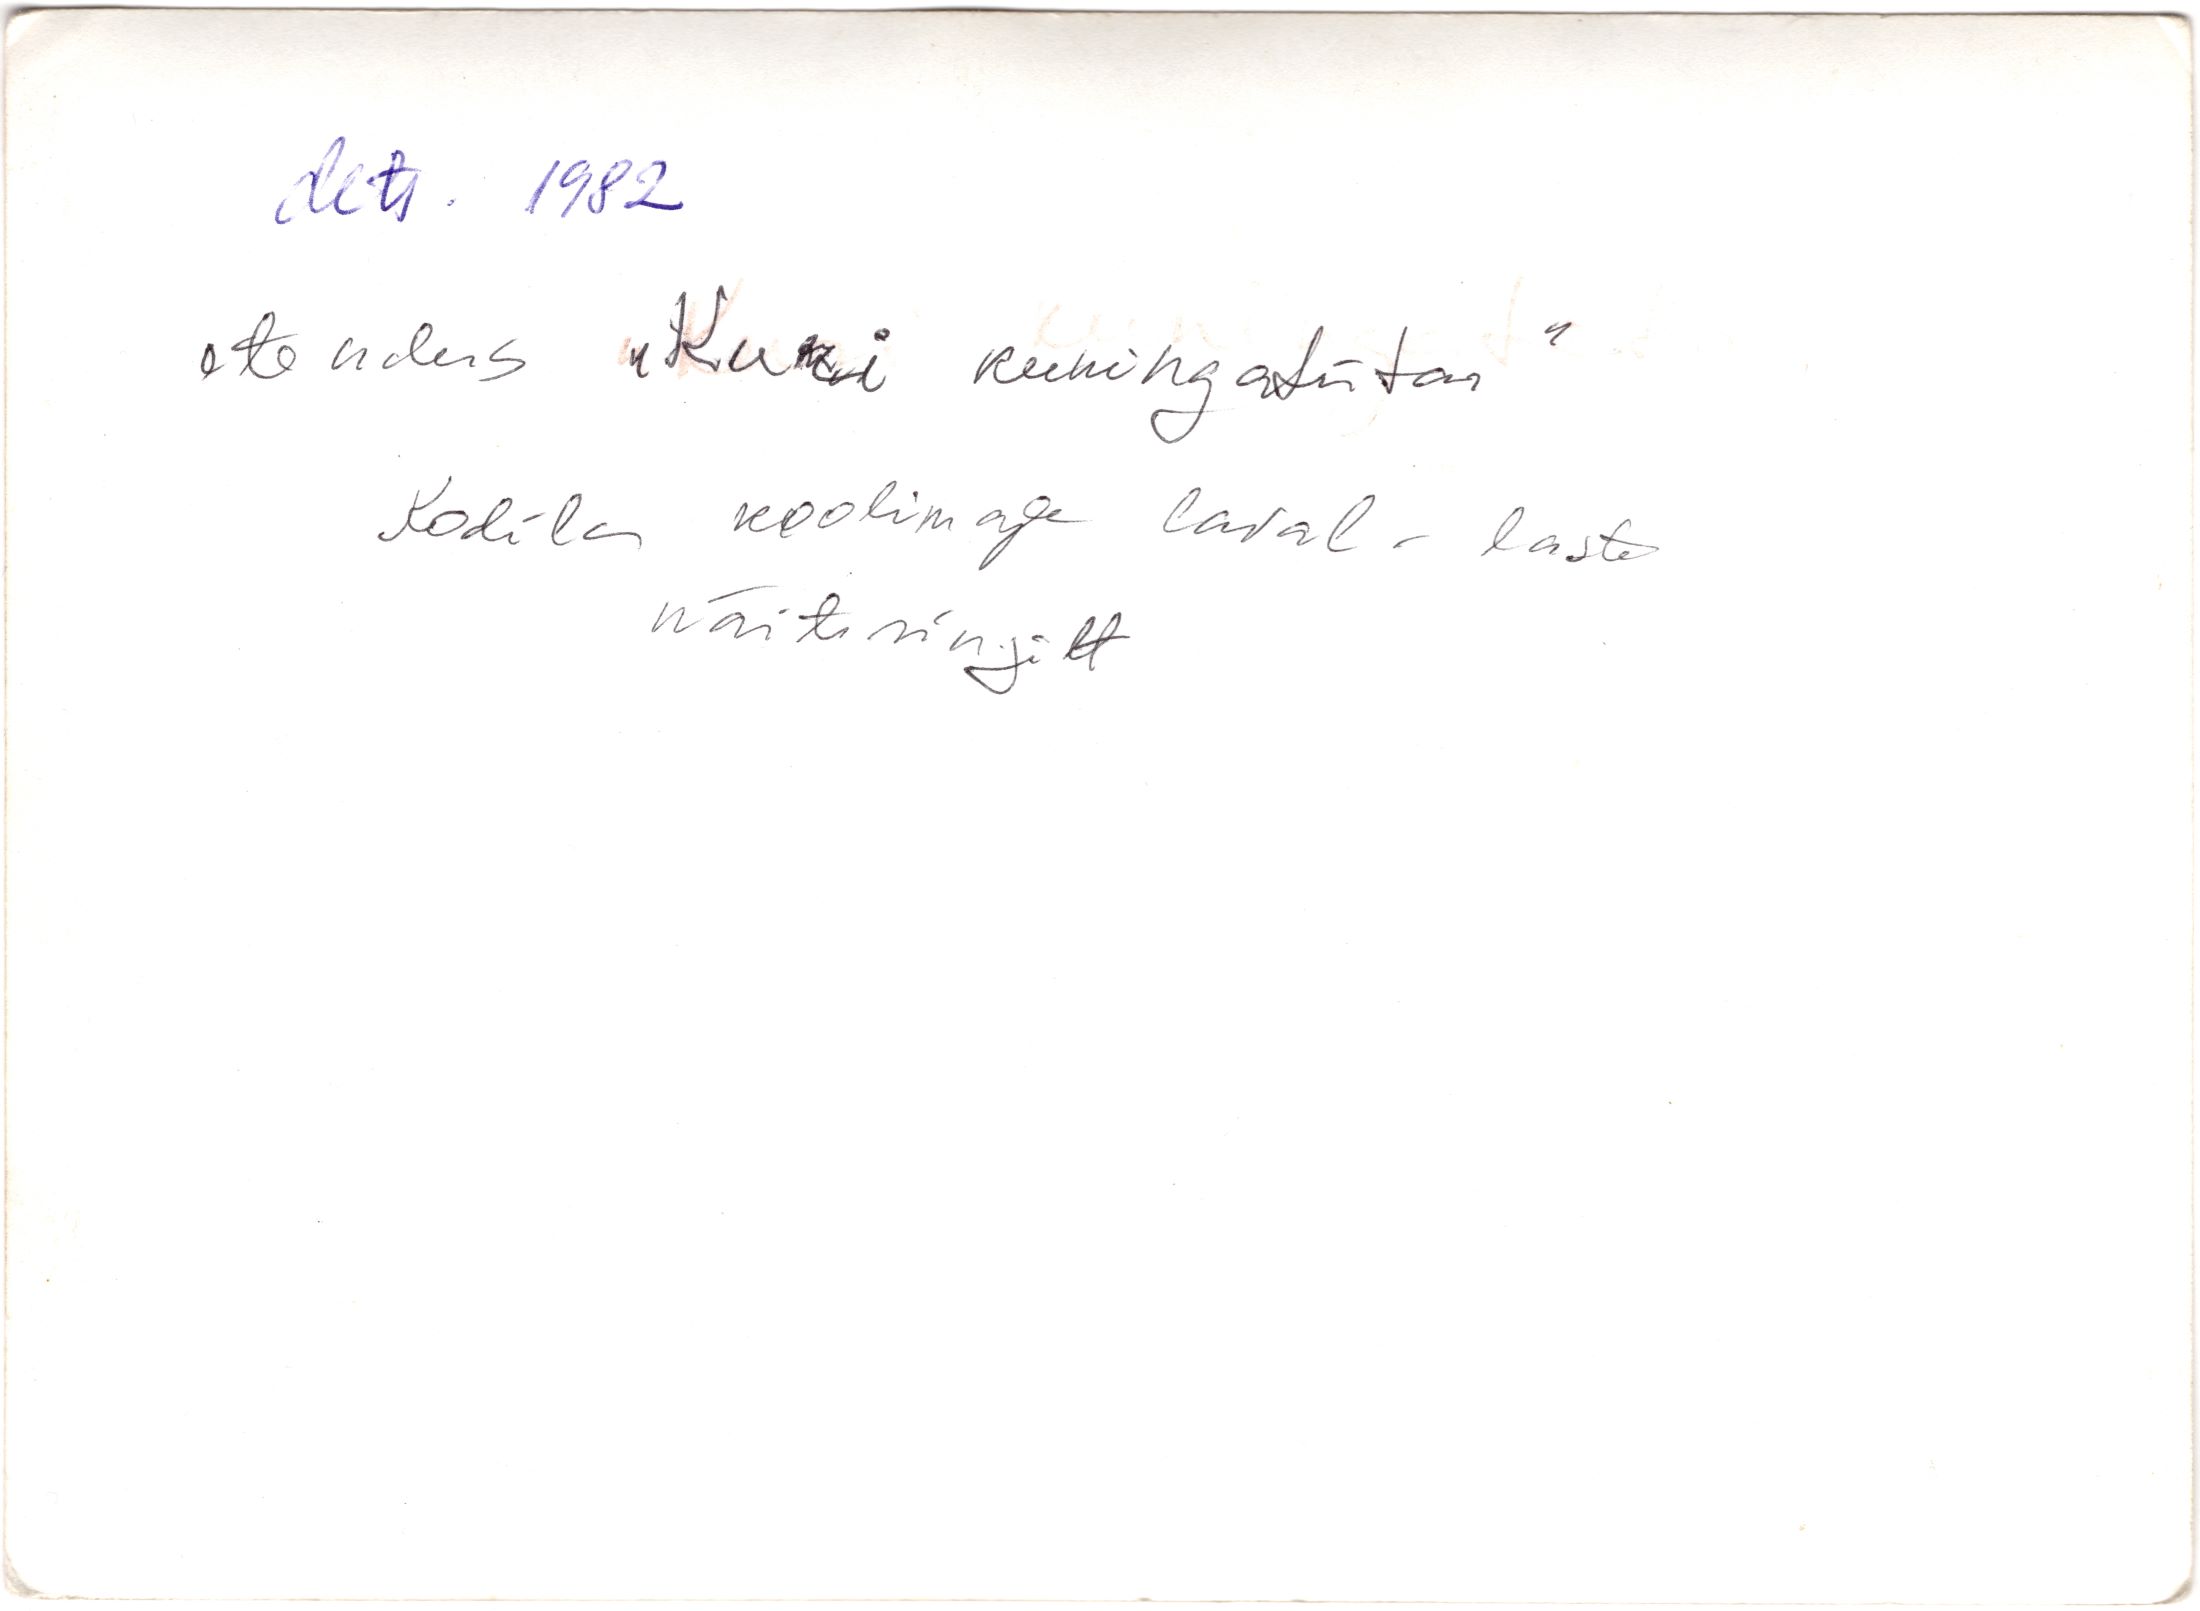 dets. 1982
etendus "Kuri kuningatütar"
Kodila koolimaja laval - laste
näiteringilt